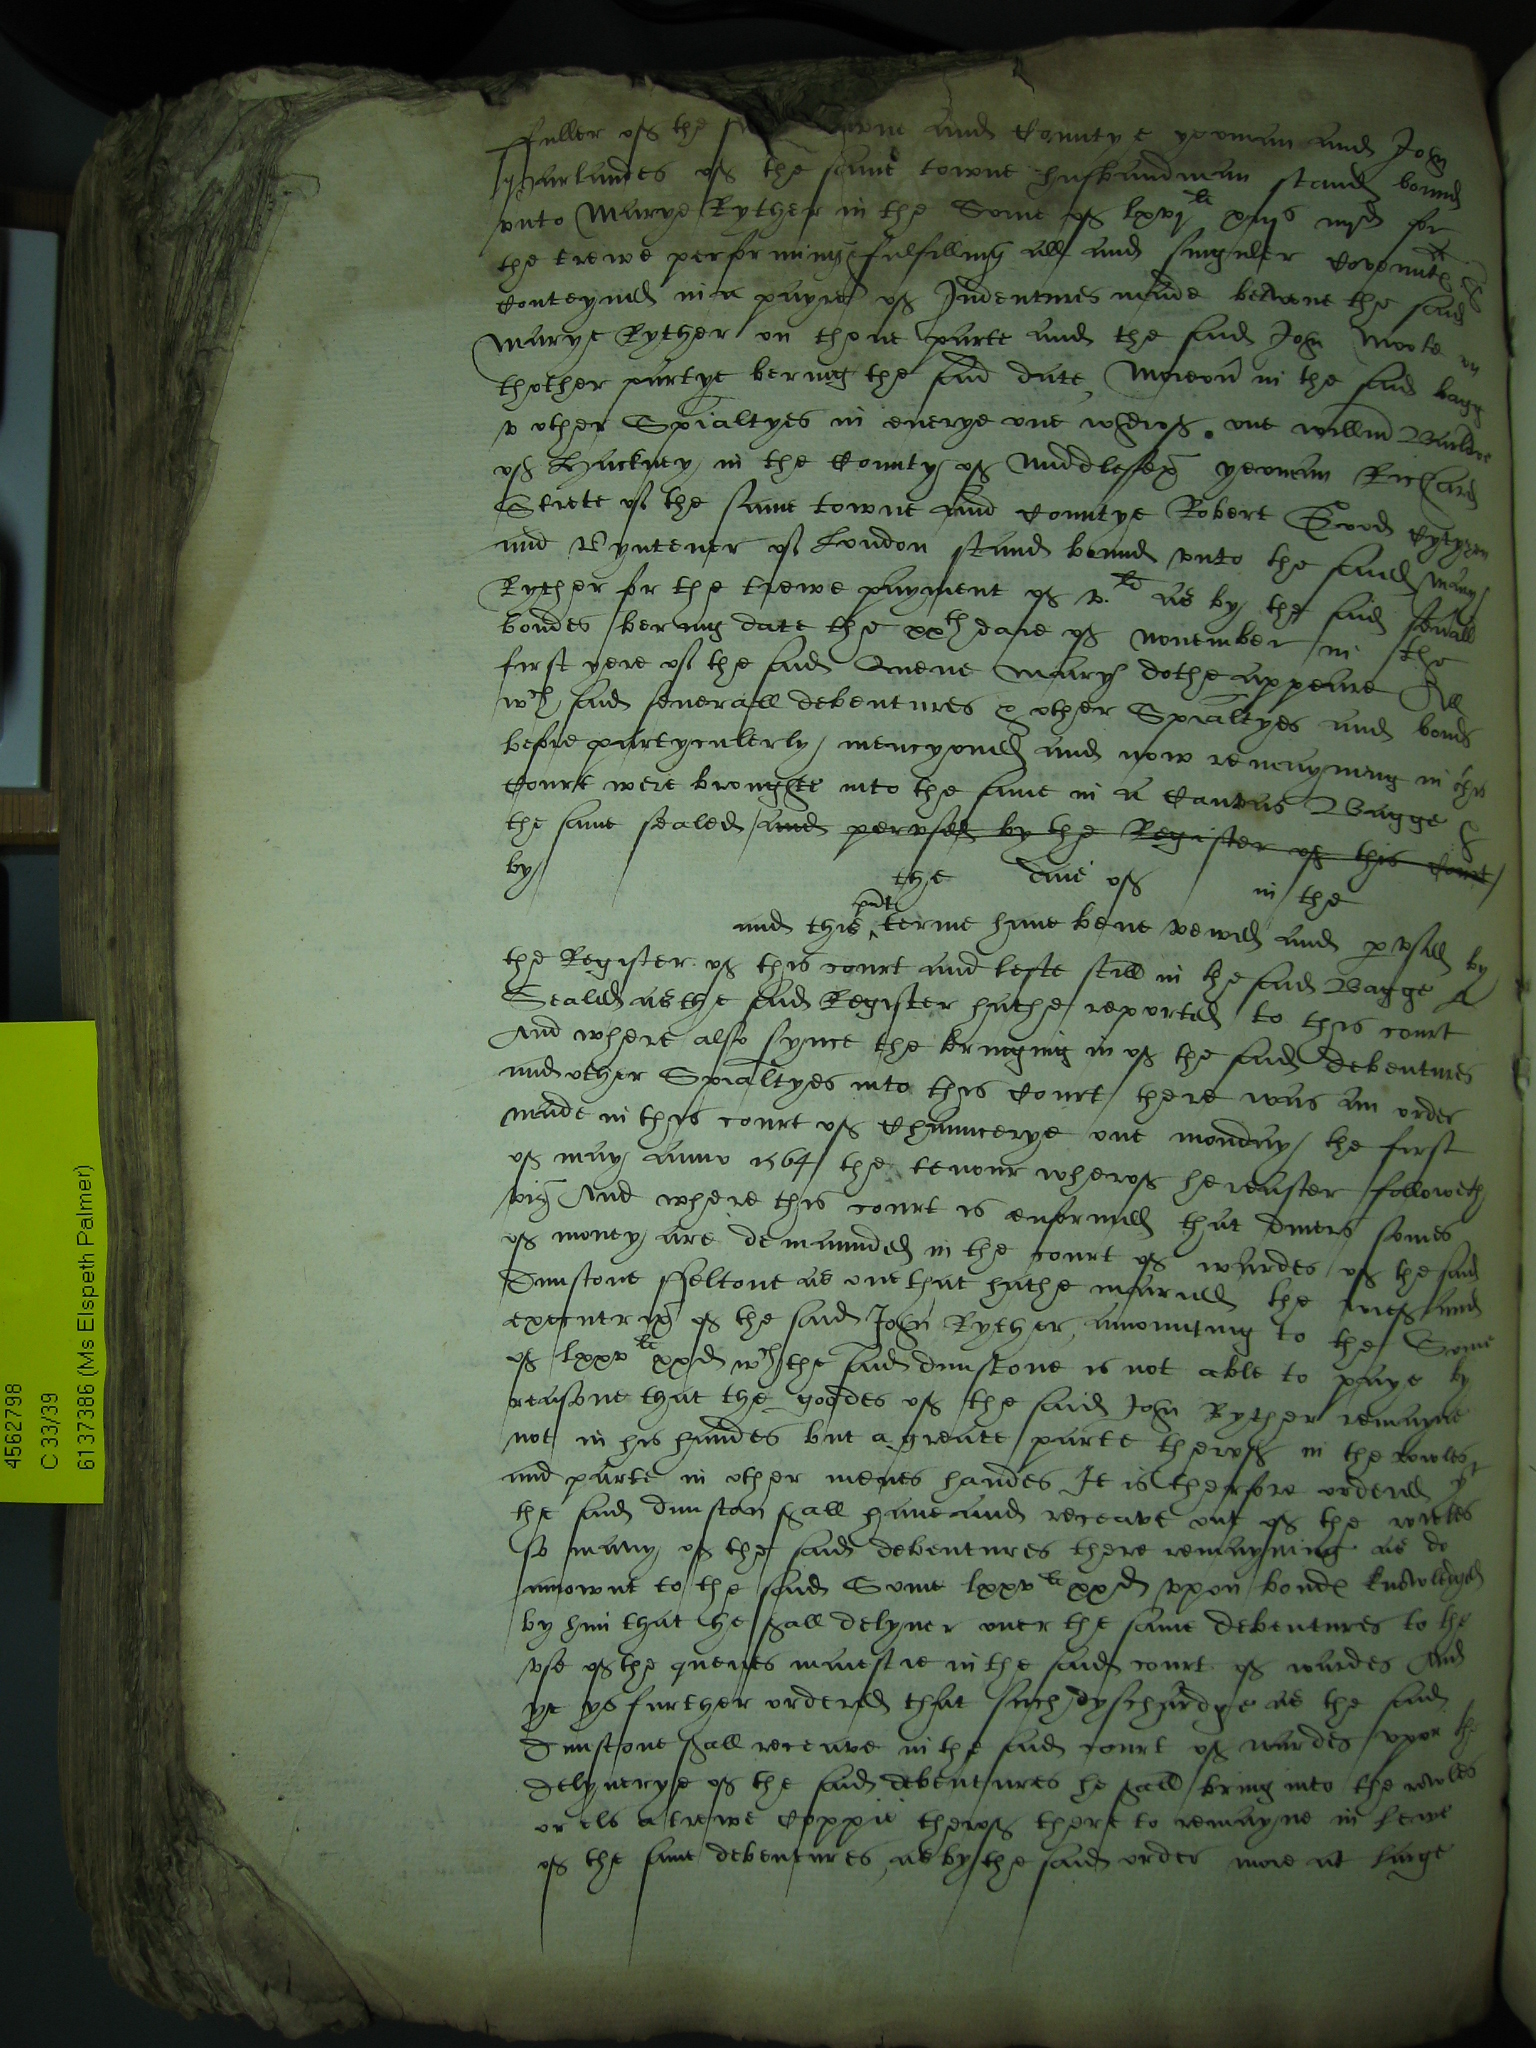 fuller of the towne and Countye yeoman and John
harlandes of the same towne husbandman stand bound
vnto Marye Ryther in the Some of lxvjli xiijs iiijd for
the trewe performing fulfilling all and singuler Covenntes
Conteyned in a payre of Indentures made betwene the said
Marye Ryther on thone parte and the said John Moole on
thother partye bering the said date, Moreouer in the said bagg
v other Specialtyes in euerye one wherof. one willm
of Hackney in the County of Middlesex yeoman Richard
Strete of the same towne and Countye Robert Good Cytyzen
and Vyntener of London stand bound vnto the said Marye
Ryther for the trewe payment of v.li as by the said seuerall
bondes bering date the xxth daie of November in the
first yere of the said Quene Marye dothe appeare All
wch said seuerall debentures & other Specialtyes and bonds
before partyculerly mencyoned and now remayning in this
Court were broughte into the same in a Canvas Bagge &
the same sealed and pervsed by the Register of this Court
by
the daie of in the
and this pnt terme haue bene vewed and pvsed by
the Register of this court and lefte still in the said Bagge
Sealed as the said Register hathe reported to this court
And where also synce the bringing in of the said debentures
and other Specialtyes into this Court there was an order
made in this court of Chauncerye one monday the first
of may anno 1564 the tenour wherof hereafter followeth
viz And where this court is enformed that diuers somes
of money are demaunded in the court of wardes of the said
Dunstone ffeltone as one that hathe maried the wief and
executrix of the said John Ryther, amounting to the Some
of lxxvli xxd wch the said dunstone is not able to paye by
reasone that the goodes of the said John Ryther remayne
not in his handes but a greate parte therof in the rowles
and parte in other menes handes It is therfore ordered yt
the said dunstan shall haue and receave out of the rolles
so many of the said debentures there remayning as do
amownt to the said Some lxxvli xxd vpon bond knowledged
by him that he shall delyuer ouer the same debentures to the
vse of the quenes maiestie in the said court of wardes And
yt ys further ordered that such dyschardge as the said
Dunstone shall receave in the said court of wardes vpon the
delyuerye of the said debentures he shall bring into the rowles
or els a trewe Coppie therof there to remayne in lewe
of the same debentures, as by the said order more at large
4562798
C 33/39
6137386 (Ms Elspeth Palmer)